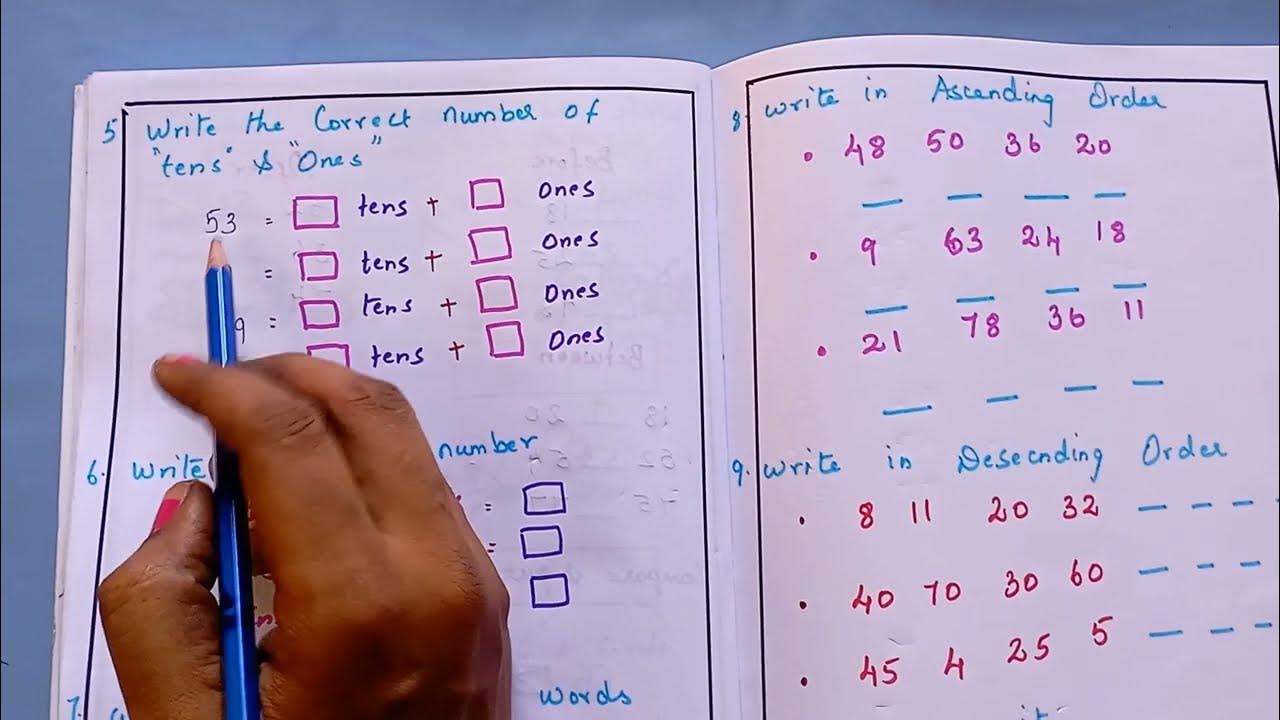 5 Write the Correct number of
"tens" & "Ones"
53 = tens + Ones
= tens + Ones
9 = tens + Ones
tens + Ones
6. Write number
=
=
7. words
8. write in Ascending Order
• 48 50 36 20
• 9 63 24 18
• 21 78 36 11
9. write in Desecnding Order
• 8 11 20 32
• 40 70 30 60
• 45 4 25 5